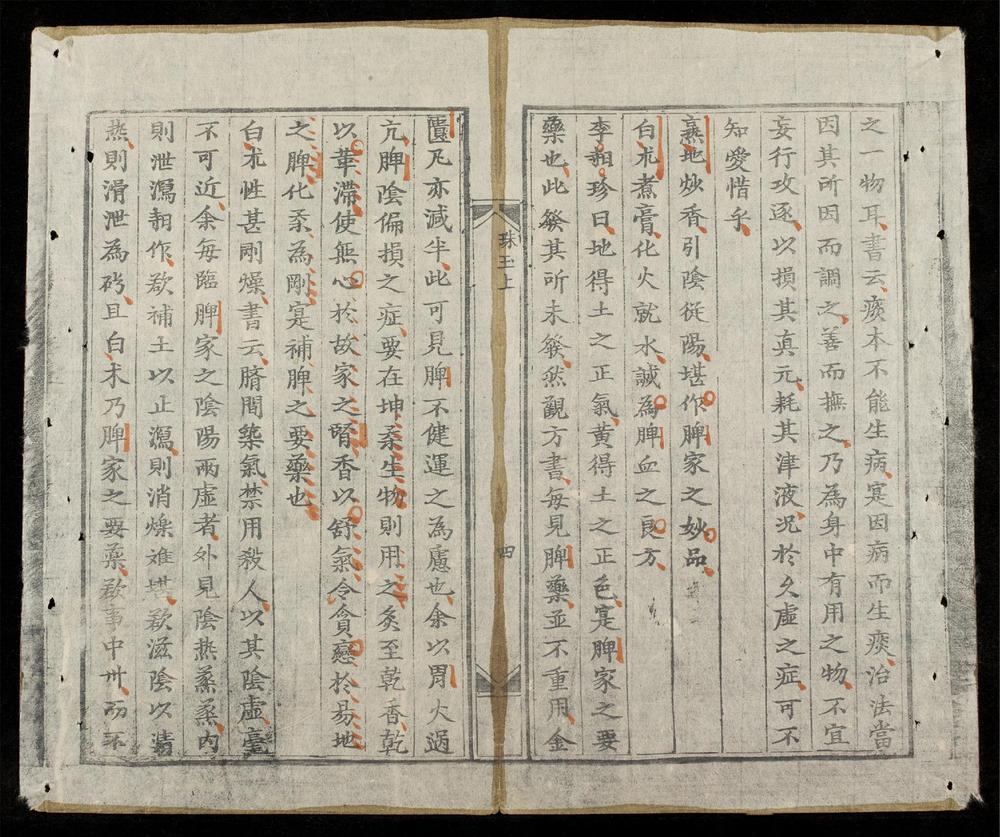 之一物耳書云痰本不能生病寔因病而生痰治法當
因其所因而調之善而撫之乃為身中有用之物不宜
妄行攻逐以損其真元耗其津液况於久虛之症可不
知愛惜乎
熟地炒香引陰從陽堪作脾家之妙品
白朮煮膏化火就水誠為脾血之良方
李時珍曰地得土之正氣黃得土之正色寔脾家之要
藥也此發其所未發然觀方書每見脾藥並不重用金
匱凡亦減半此可見脾不健運之為慮也余以胃火過
亢脾陰偏損之症要在坤柔生物則用之炙至乾香乾
以葷滯使無心於故家之腎香以舒氣令貪戀於易地
之脾化柔為剛寔補脾之要藥也
白朮性甚剛燥書云臍間築氣禁用殺人以其陰虛毫
不可近余每臨脾家之陰陽兩虛者外見陰熱蒸蒸內
則泄瀉朝作欲補土以止瀉則消爍难堪欲滋陰以清
熱則滑泄為
且白朮乃脾家之要藥欲事中州而不
珠玉上
四